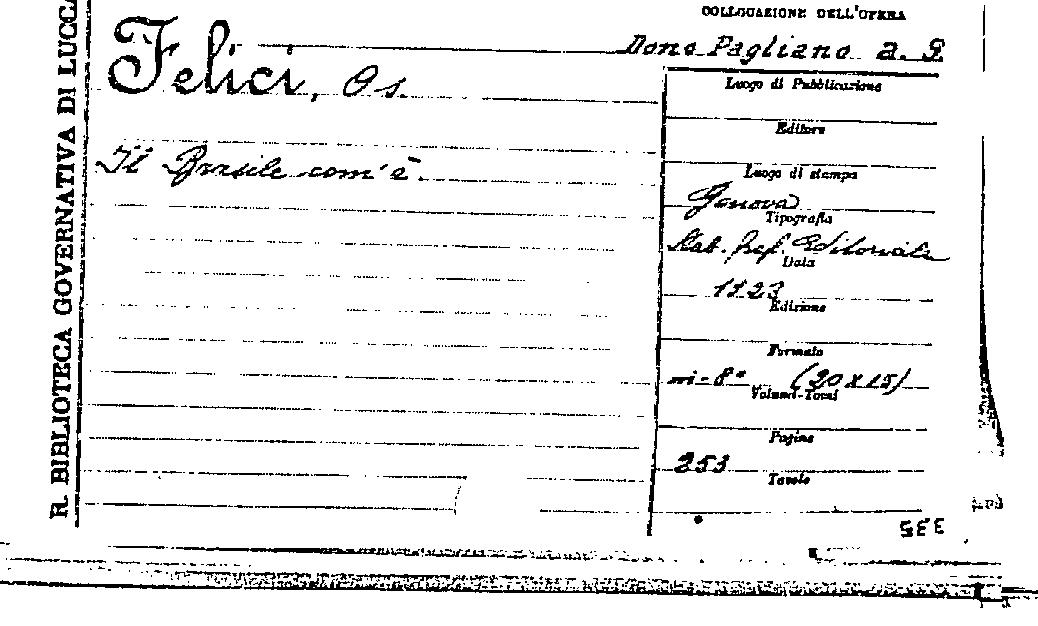 R. BIBLIOTECA GOVERNATIVA DI LUCCA
Felici, Os.
Il Brasile com'è.
COLLOCAZIONE DELL'OPERA
Dono Pagliano a. G.
Luogo di Pubblicazione
Editore
Luogo di stampa
Genova
Tipografia
Stab. Editoriale
Data
1923
Edizione
Formato
in-8° (20x15)
Volumi-Tomi
Pagine
253
Tavole